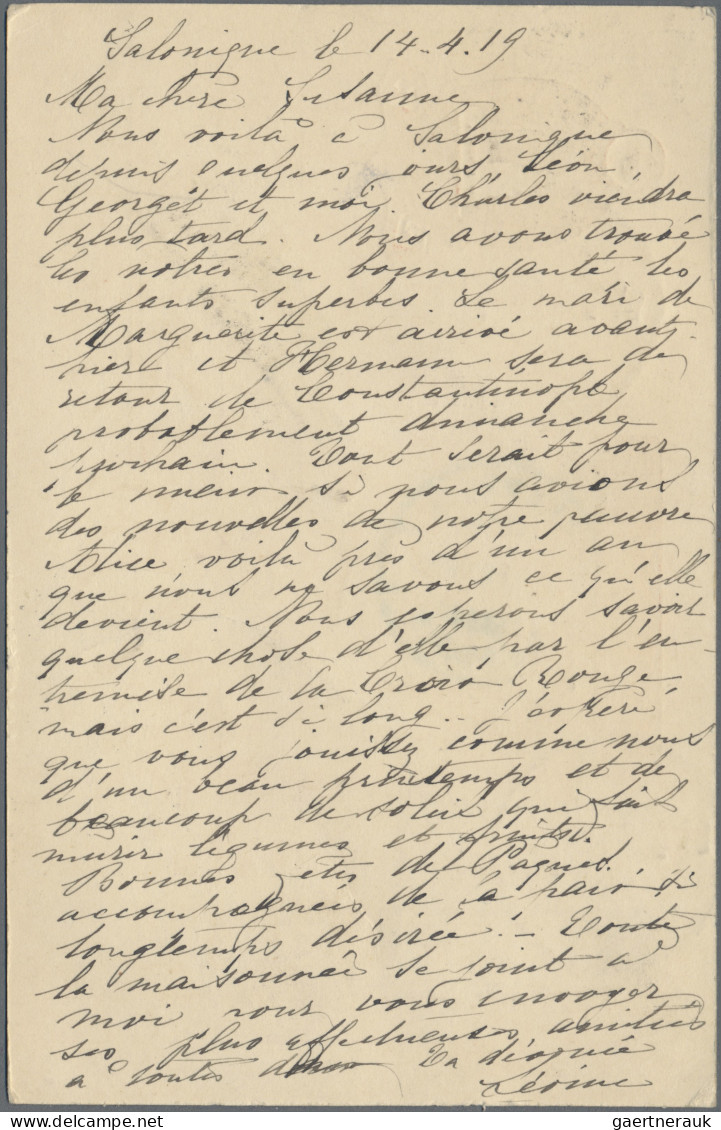 Salonique le 14-4.19
Ma chère Susanne
Nous voilà à Salonique
depuis quelques jours, Léon,
Georget et moi. Charles viendra
plus tard. Nous avons trouvé
les nôtres en bonne santé les
enfants superbes. Le mari de
Marguerite est arrivé avant-
hier et Hermann sera de
retour de Constantinople
probablement dimanche
prochain. Tout serait pour
le mieux si nous avions
des nouvelles de notre pauvre
Alice voilà près d'un an
que nous ne savons ce qu'elle
devient. Nous esperons savoir
quelque chose d'elle par l'en-
tremise de la Croix Rouge
mais c'est si long.. J'espère
que vous jouissez comme nous
d'un beau printemps et de
beaucoup de soleil qui fait
murir légumes et fruits.
Bonnes fêtes de Pâques.
accompagnées de la paix si
longtemps désirée! - Toute
la maisonnée se joint à
moi pour vous envoyer
ses plus affectueuses amitiés
à toutes deux Ta dévouée
Léonie
gaertnerauk